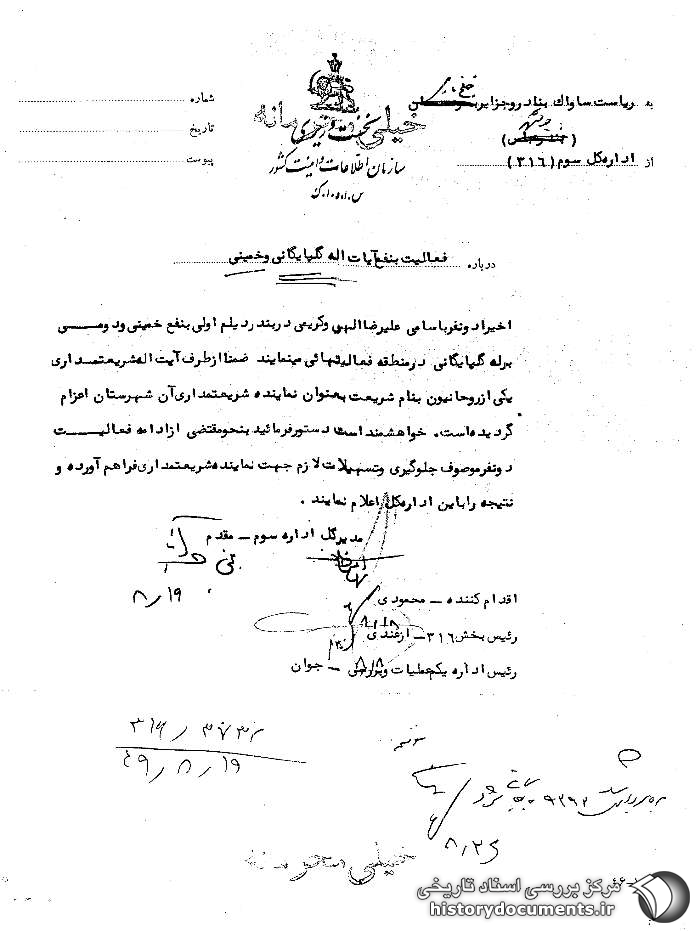 به ریاست ساواك بنادر و جزایر خلیج فارس
از اداره کل سوم (۳۱۶)
شماره
تاریخ
پیوست
نخست وزیری
خیلی محرمانه
سازمان اطلاعات و امنیت کشور
درباره فعالیت بنفع آیات اله گلپایگانی و خمینی
اخیرا دو نفر باسامی علیرضا الهی وکریمی در بندر دیلم اولی بنفع خمینی ودومی
برله گلپایگانی در منطقه فعالیتهائی مینمایند ضمنا ازطرف آیت اله شریعتمداری
یکی ازروحانیون بنام شریعت بعنوان نماینده شریعتمداری آن شهرستان اعزام
گردیده است. خواهشمند است دستورفرمائید بنحو مقتضی ازادامه فعالیت
دونفر موصوف جلوگیری وتسهیلات لازم جهت نماینده شریعتمداری فراهم آورده و
نتیجه رابا ین اداره کل اعلام نمایند .
مدیرکل اداره سوم - مقدم
۸/۱۹
اقدام کننده - محمودی
رئیس بخش ۳۱۶ - ازغندی
رئیس اداره یکم عملیات و بررسی - جوان
۳۱۶/۳۷۳۲
۴۹/۸/۱۹
۸/۲۵
خیلی محرمانه
مرکز بررسی اسناد تاریخی
historydocuments.ir